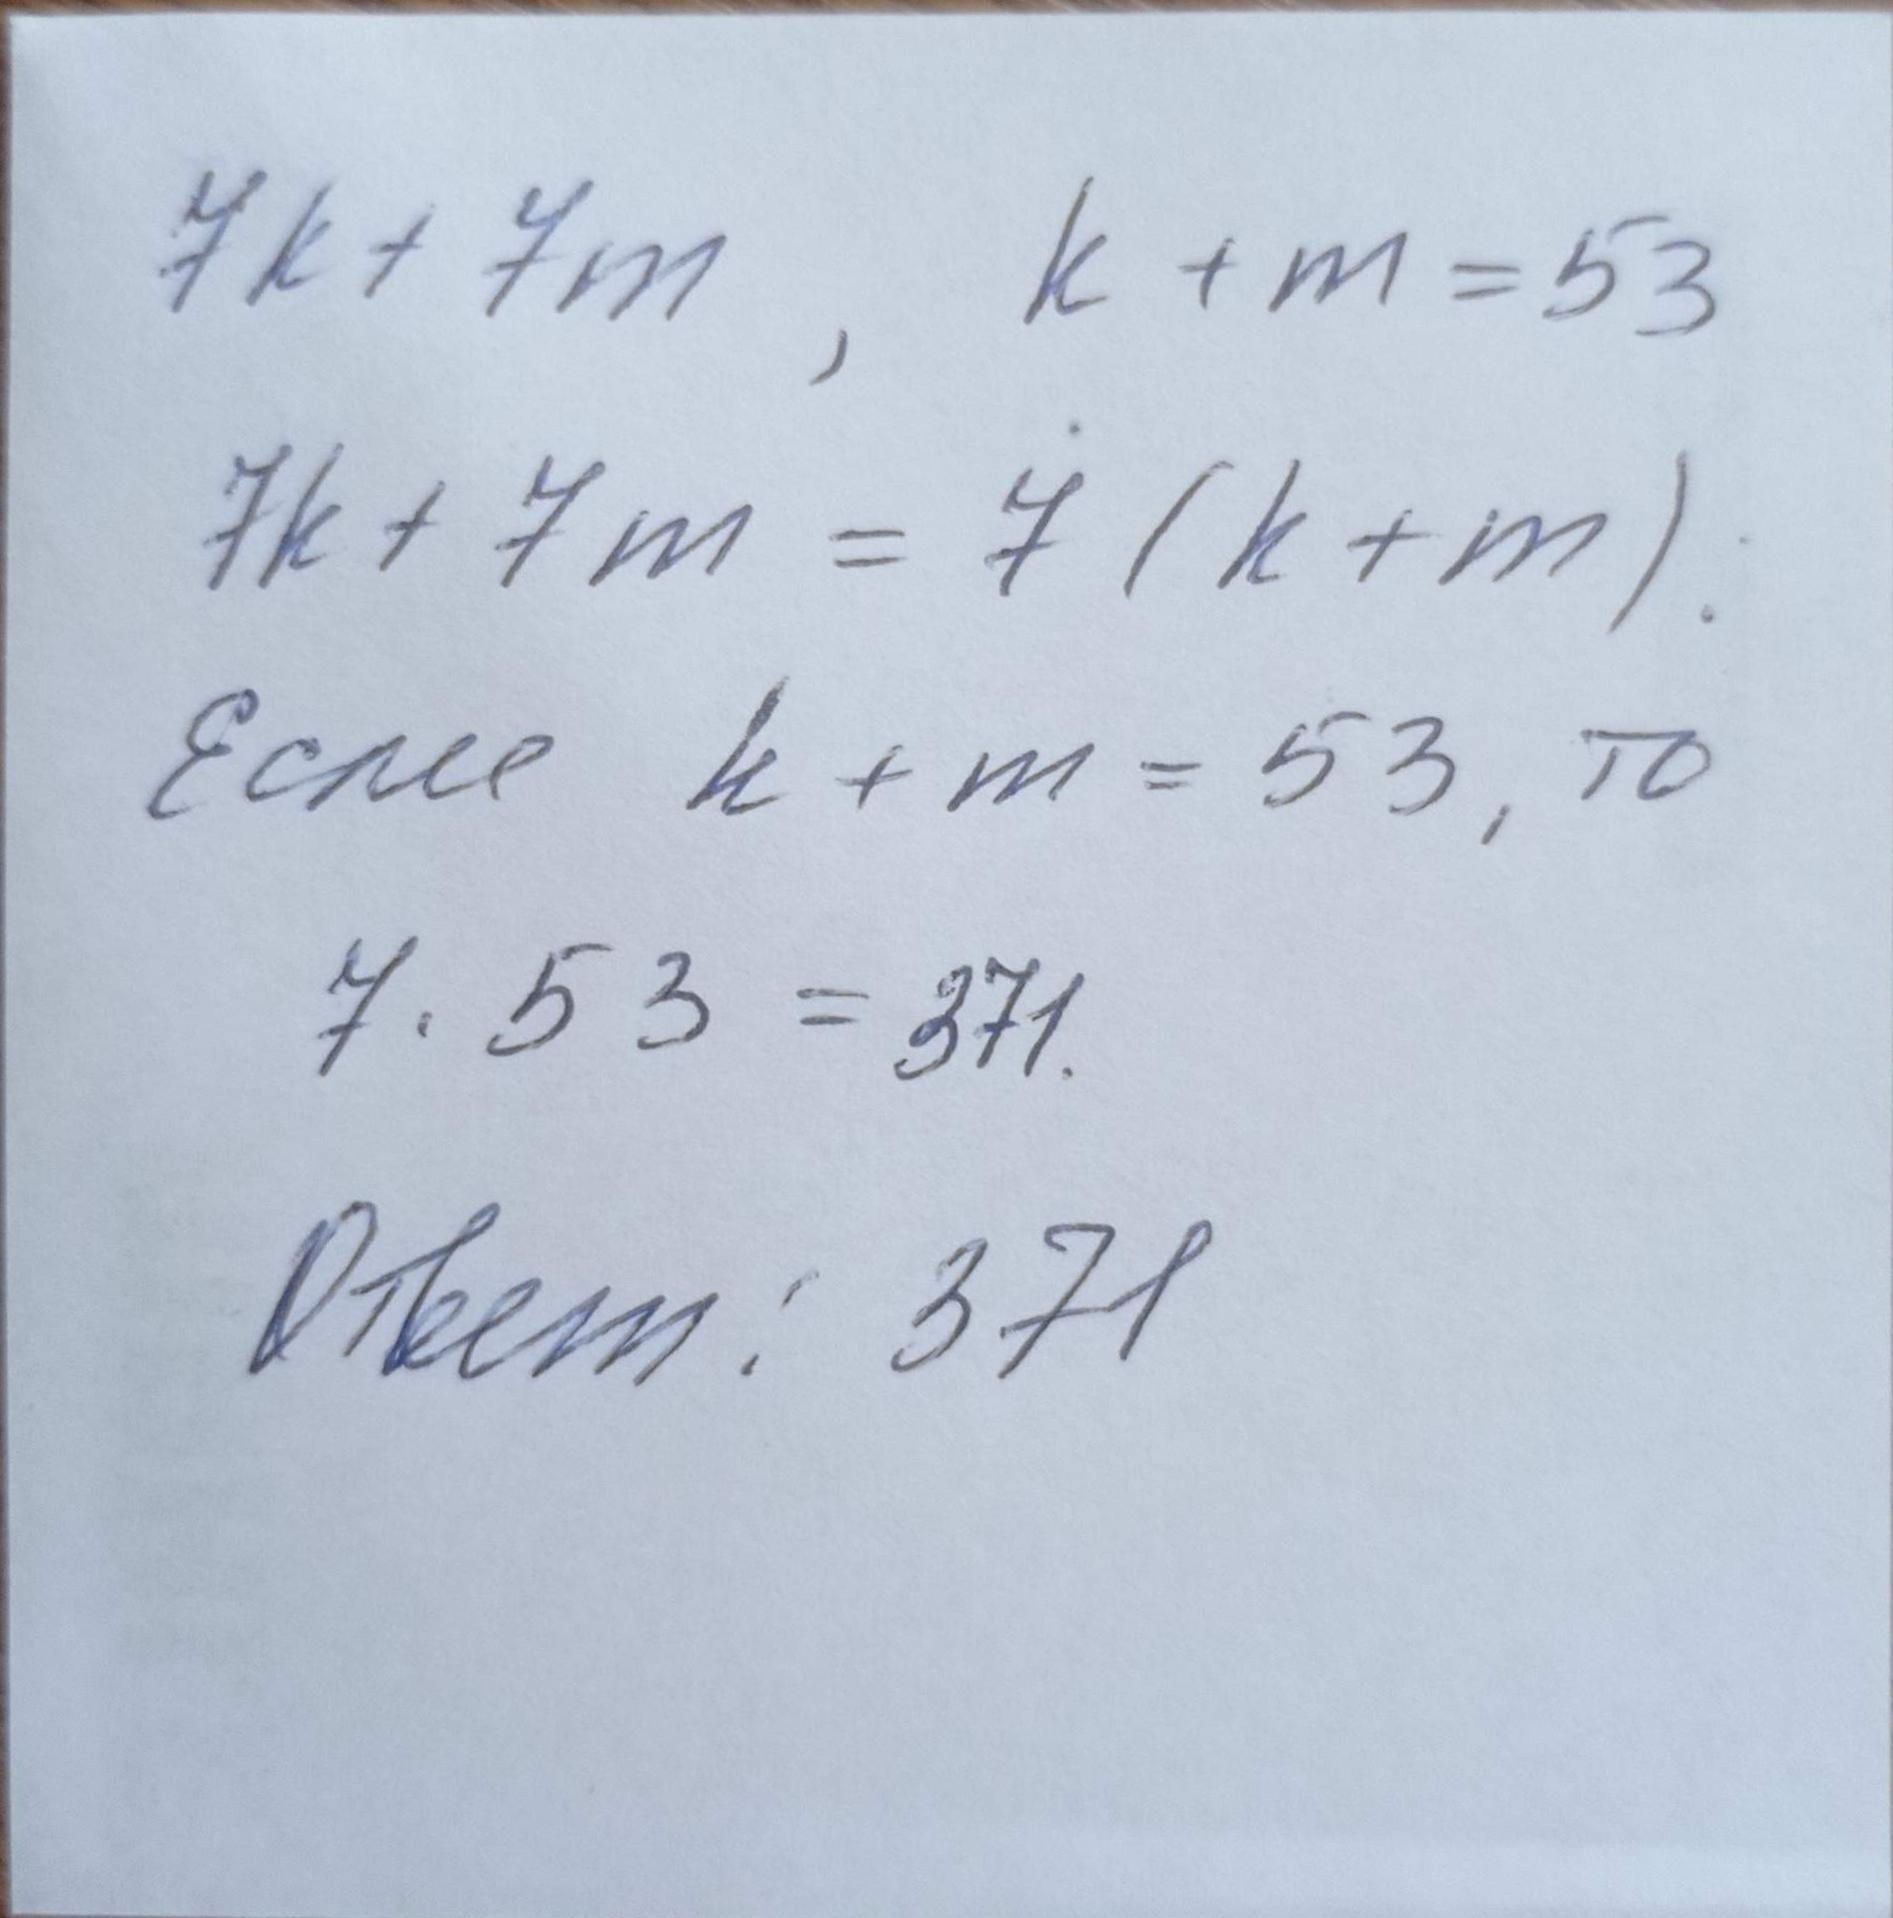 7k + 7m , k + m = 53
7k + 7m = 7 (k + m).
Если k + m = 53, то
7 · 53 = 371.
Ответ: 371